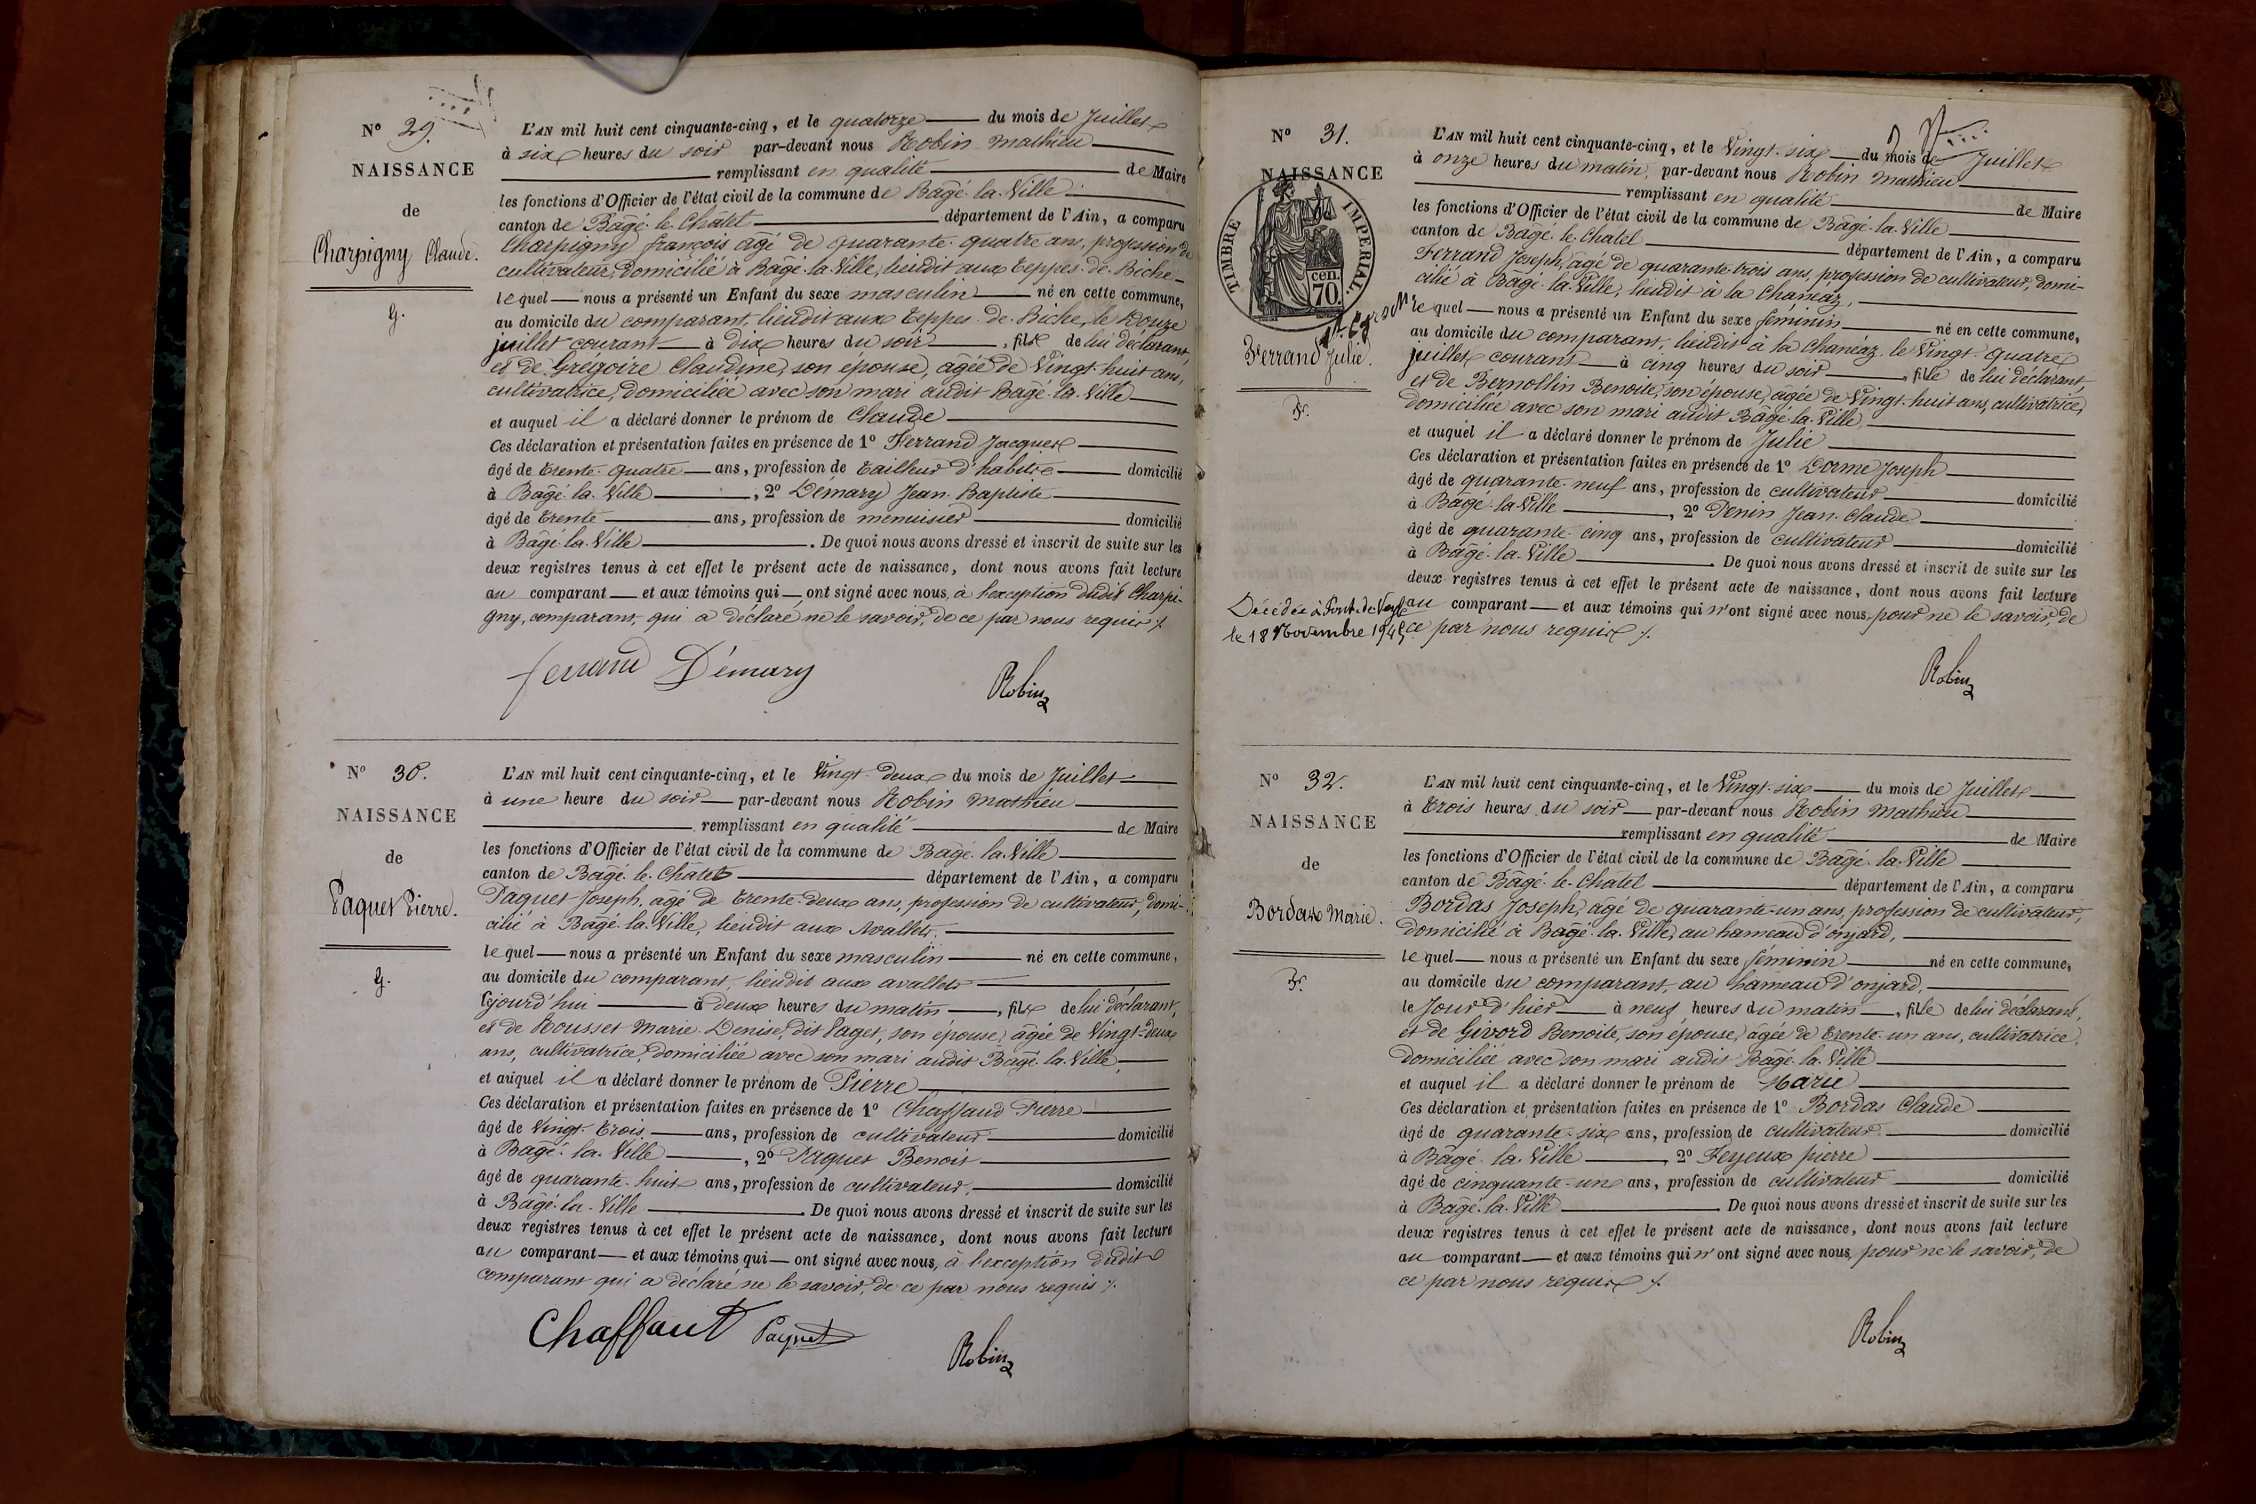 Nº 29.
NAISSANCE
de
Charpigny Claude.
g.
L'AN mil huit cent cinquante-cinq, et le quatorze du mois de Juillet
à six heures du soir par-devant nous Robin Mathieu
remplissant en qualité de Maire
les fonctions d'Officier de l'état civil de la commune de Bâgé-la-Ville
canton de Bâgé-le-Châtel département de l'Ain, a comparu
Charpigny françois âgé de quarante-quatre ans, profession de
cultivateur, domicilié à Bâgé-la-Ville, lieudit aux teppes-de-Biche
lequel nous a présenté un Enfant du sexe masculin né en cette commune,
au domicile du comparant, lieudit aux teppes-de-Biche, le douze
juillet courant à dix heures du soir, fils de lui déclarant,
et de Grégoire Claudine, son épouse, âgée de Vingt-huit ans,
cultivatrice, domiciliée avec son mari audit Bâgé-la-Ville
et auquel il a déclaré donner le prénom de Claude
Ces déclaration et présentation faites en présence de 1º Ferrand Jacques
âgé de trente-quatre ans, profession de tailleur d'habits domicilié
à Bâgé-la-Ville, 2º Démary Jean-Baptiste
âgé de trente ans, profession de menuisier domicilié
à Bâgé-la-Ville. De quoi nous avons dressé et inscrit de suite sur les
deux registres tenus à cet effet le présent acte de naissance, dont nous avons fait lecture
au comparant et aux témoins qui ont signé avec nous, à l'exception dudit Charpi-
gny, comparant, qui a déclaré ne le savoir, de ce par nous requis
ferrand Démary
Robin
Nº 30.
NAISSANCE
de
Paquet Pierre.
g.
L'AN mil huit cent cinquante-cinq, et le Vingt-deux du mois de Juillet
à une heure du soir par-devant nous Robin Mathieu
remplissant en qualité de Maire
les fonctions d'Officier de l'état civil de la commune de Bâgé-la-Ville
canton de Bâgé-le-Châtel département de l'Ain, a comparu
Paquet Joseph, âgé de trente-deux ans, profession de cultivateur, domi-
cilié à Bâgé-la-Ville, lieudit aux Avallets.
lequel nous a présenté un Enfant du sexe masculin né en cette commune,
au domicile du comparant, lieudit aux avallets
cejourd'hui à deux heures du matin, fils de lui déclarant,
et de Rousset Marie-Denise, dit Paget, son épouse, âgée de Vingt-deux
ans, cultivatrice, domiciliée avec son mari audit Bâgé-la-Ville,
et auquel il a déclaré donner le prénom de Pierre
Ces déclaration et présentation faites en présence de 1º Chaffaud Pierre
âgé de Vingt-trois ans, profession de cultivateur domicilié
à Bâgé-la-Ville, 2º Paquet Benoit
âgé de quarante-huit ans, profession de cultivateur, domicilié
à Bâgé-la-Ville. De quoi nous avons dressé et inscrit de suite sur les
deux registres tenus à cet effet le présent acte de naissance, dont nous avons fait lecture
au comparant et aux témoins qui ont signé avec nous, à l'exception dudit
comparant qui a déclaré ne le savoir, de ce par nous requis
Chaffaut Paquet
Robin
Nº 31.
NAISSANCE
TIMBRE IMPERIAL.
70 cen.
Ferrand Julie.
f.
Décédée à Pont-de-Veyle
le 18 Novembre 1945
L'AN mil huit cent cinquante-cinq, et le Vingt-six du mois de Juillet
à onze heures du matin, par-devant nous Robin Mathieu
remplissant en qualité de Maire
les fonctions d'Officier de l'état civil de la commune de Bâgé-la-Ville
canton de Bâgé-le-Chatel département de l'Ain, a comparu
Ferrand Joseph, âgé de quarante-trois ans, profession de cultivateur, domi-
cilié à Bâgé-la-Ville, lieudit à la Chanéaz,
lequel nous a présenté un Enfant du sexe féminin né en cette commune,
au domicile du comparant, lieudit à la Chanéaz, le Vingt-quatre
juillet courant à cinq heures du soir, fille de lui déclarant,
et de Bernollin Benoite, son épouse, âgée de Vingt-huit ans, cultivatrice,
domiciliée avec son mari audit Bâgé-la-Ville
et auquel il a déclaré donner le prénom de Julie
Ces déclaration et présentation faites en présence de 1º Dorme Joseph
âgé de quarante-neuf ans, profession de cultivateur domicilié
à Bâgé-la-Ville, 2º Penin Jean-Claude
âgé de quarante-cinq ans, profession de cultivateur domicilié
à Bâgé-la-Ville. De quoi nous avons dressé et inscrit de suite sur les
deux registres tenus à cet effet le présent acte de naissance, dont nous avons fait lecture
au comparant et aux témoins qui n'ont signé avec nous, pour ne le savoir, de
ce par nous requis
Robin
Nº 32.
NAISSANCE
de
Bordas Marie.
f.
L'AN mil huit cent cinquante-cinq, et le Vingt-six du mois de Juillet
à trois heures du soir par-devant nous Robin Mathieu
remplissant en qualité de Maire
les fonctions d'Officier de l'état civil de la commune de Bâgé-la-Ville
canton de Bâgé-le-Châtel département de l'Ain, a comparu
Bordas Joseph, âgé de quarante-un ans, profession de cultivateur,
domicilié à Bâgé-la-Ville, au hameau d'onjard,
lequel nous a présenté un Enfant du sexe féminin né en cette commune,
au domicile du comparant, au hameau d'onjard,
le Jour d'hier à neuf heures du matin, fille de lui déclarant,
et de Givord Benoite, son épouse, âgée de trente-un ans, cultivatrice,
domiciliée avec son mari audit Bâgé-la-Ville
et auquel il a déclaré donner le prénom de Marie
Ces déclaration et présentation faites en présence de 1º Bordas Claude
âgé de quarante-six ans, profession de cultivateur domicilié
à Bâgé-la-Ville, 2º Feyeux pierre
âgé de cinquante-un ans, profession de cultivateur domicilié
à Bâgé-la-Ville. De quoi nous avons dressé et inscrit de suite sur les
deux registres tenus à cet effet le présent acte de naissance, dont nous avons fait lecture
au comparant et aux témoins qui n'ont signé avec nous, pour ne le savoir, de
ce par nous requis
Robin